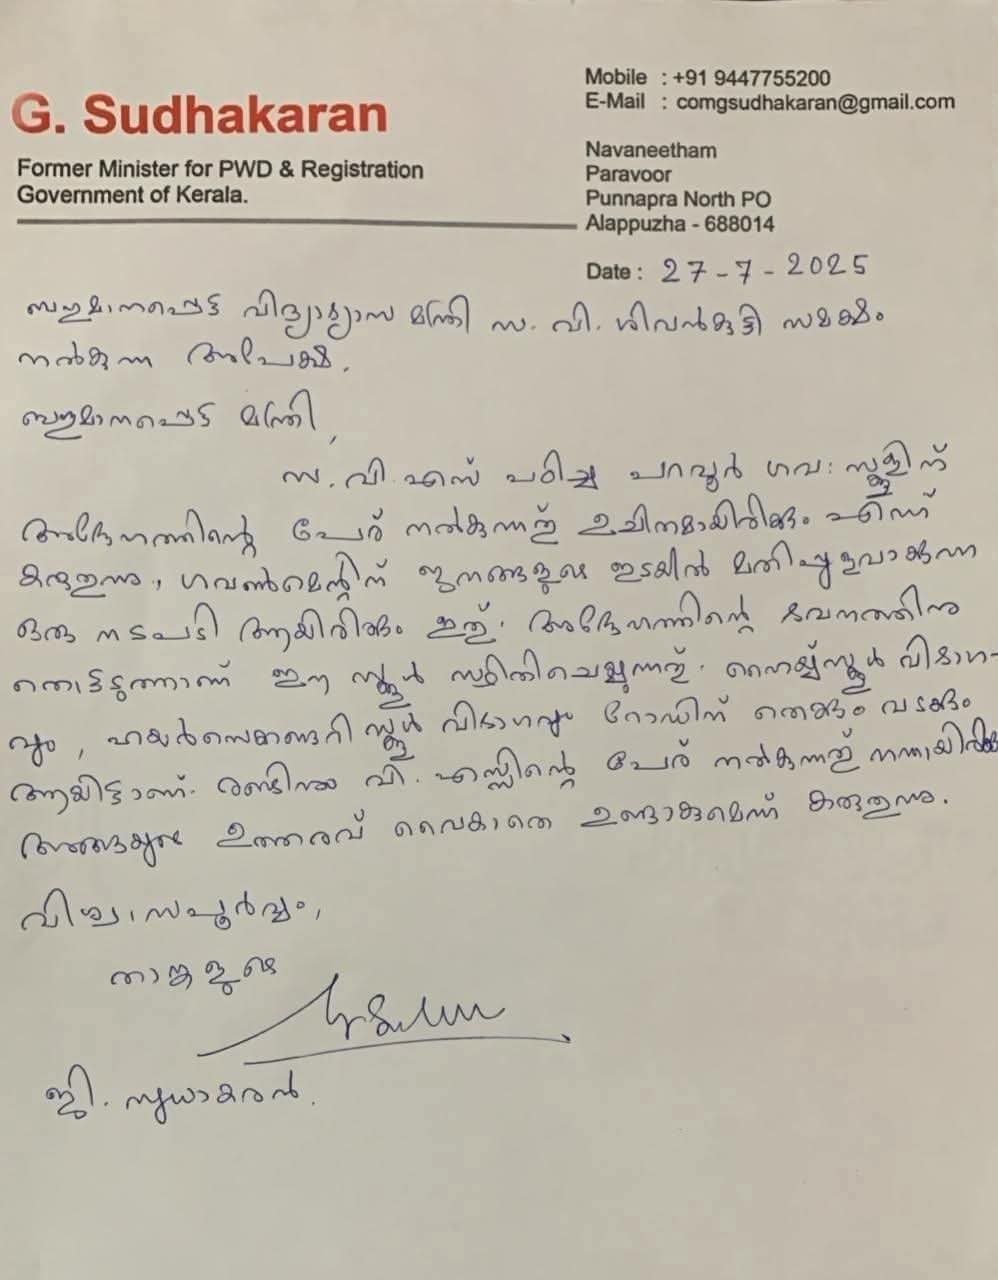 G. Sudhakaran
Former Minister for PWD & Registration
Government of Kerala.
Mobile : +91 9447755200
E-Mail : comgsudhakaran@gmail.com
Navaneetham
Paravoor
Punnapra North PO
Alappuzha - 688014
Date : 27-7-2025
ബഹുമാനപ്പെട്ട വിദ്യാഭ്യാസ മന്ത്രി സ. വി. ശിവൻകുട്ടി സമക്ഷം
നൽകുന്ന അപേക്ഷ.
ബഹുമാനപ്പെട്ട മന്ത്രി,
സ. വി. എസ് പഠിച്ച പറവൂർ ഗവ: സ്കൂളിന്
അദ്ദേഹത്തിന്റെ പേര് നൽകുന്നത് ഉചിതമായിരിക്കും എന്ന്
കരുതുന്നു, ഗവൺമെന്റിന് ജനങ്ങളുടെ ഇടയിൽ മതിപ്പുളവാക്കുന്ന
ഒരു നടപടി ആയിരിക്കും ഇത്. അദ്ദേഹത്തിന്റെ ഭവനത്തിനു
തൊട്ടടുത്താണ് ഈ സ്കൂൾ സ്ഥിതിചെയ്യുന്നത്. ഹൈസ്കൂൾ വിഭാഗ-
വും, ഹയർസെക്കണ്ടറി സ്കൂൾ വിഭാഗവും റോഡിന് തെക്കും വടക്കും
ആയിട്ടാണ്. രണ്ടിനും വി. എസ്സിന്റെ പേര് നൽകുന്നത് നന്നായിരിക്കും
അങ്ങയുടെ ഉത്തരവ് വൈകാതെ ഉണ്ടാകുമെന്ന് കരുതുന്നു.
വിശ്വാസപൂർവ്വം,
താങ്കളുടെ
ജി. സുധാകരൻ.